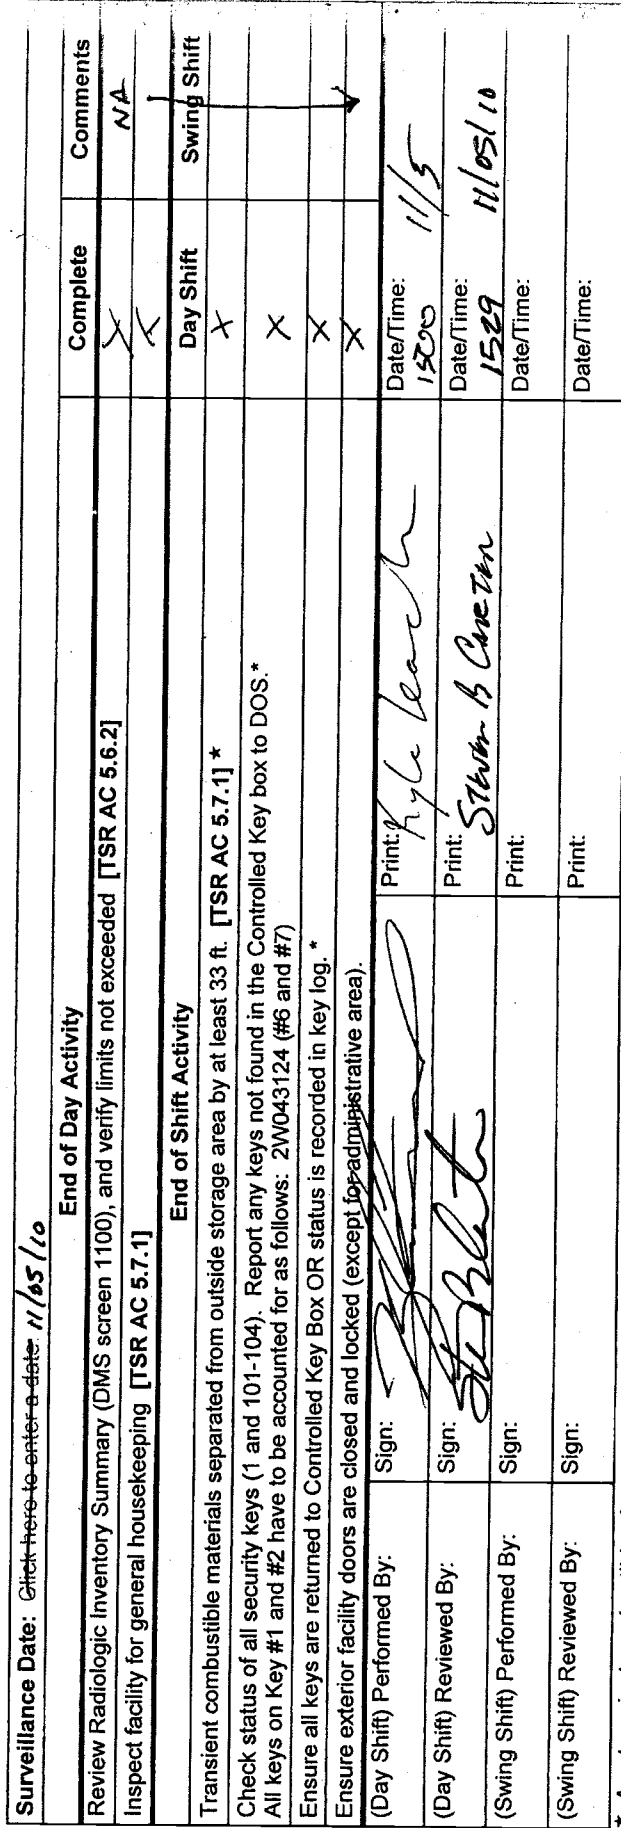 Surveillance Date: Click here to enter a date. 11/05/10
End of Day Activity Complete Comments
Review Radiologic Inventory Summary (DMS screen 1100), and verify limits not exceeded [TSR AC 5.6.2] X NA
Inspect facility for general housekeeping [TSR AC 5.7.1] X
End of Shift Activity Day Shift Swing Shift
Transient combustible materials separated from outside storage area by at least 33 ft. [TSR AC 5.7.1] * X
Check status of all security keys (1 and 101-104). Report any keys not found in the Controlled Key box to DOS.*
All keys on Key #1 and #2 have to be accounted for as follows: 2W043124 (#6 and #7) X
Ensure all keys are returned to Controlled Key Box OR status is recorded in key log. * X
Ensure exterior facility doors are closed and locked (except for administrative area). X
(Day Shift) Performed By: Sign: Print: Kyle Leach Date/Time: 1500 11/5
(Day Shift) Reviewed By: Sign: Print: Steven B Date/Time: 1529 11/05/10
(Swing Shift) Performed By: Sign: Print: Date/Time:
(Swing Shift) Reviewed By: Sign: Print: Date/Time: